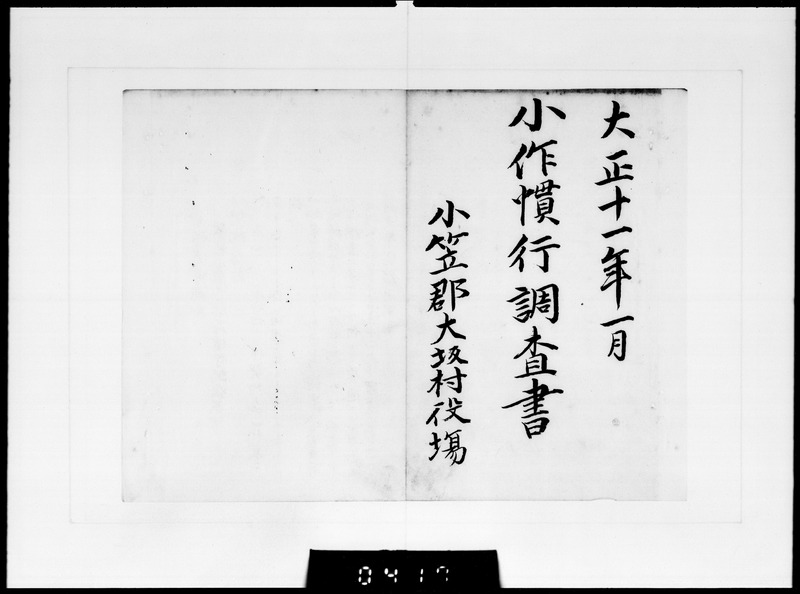 大正十一年一月
小作慣行調査書
小笠郡大坂村役場
0417